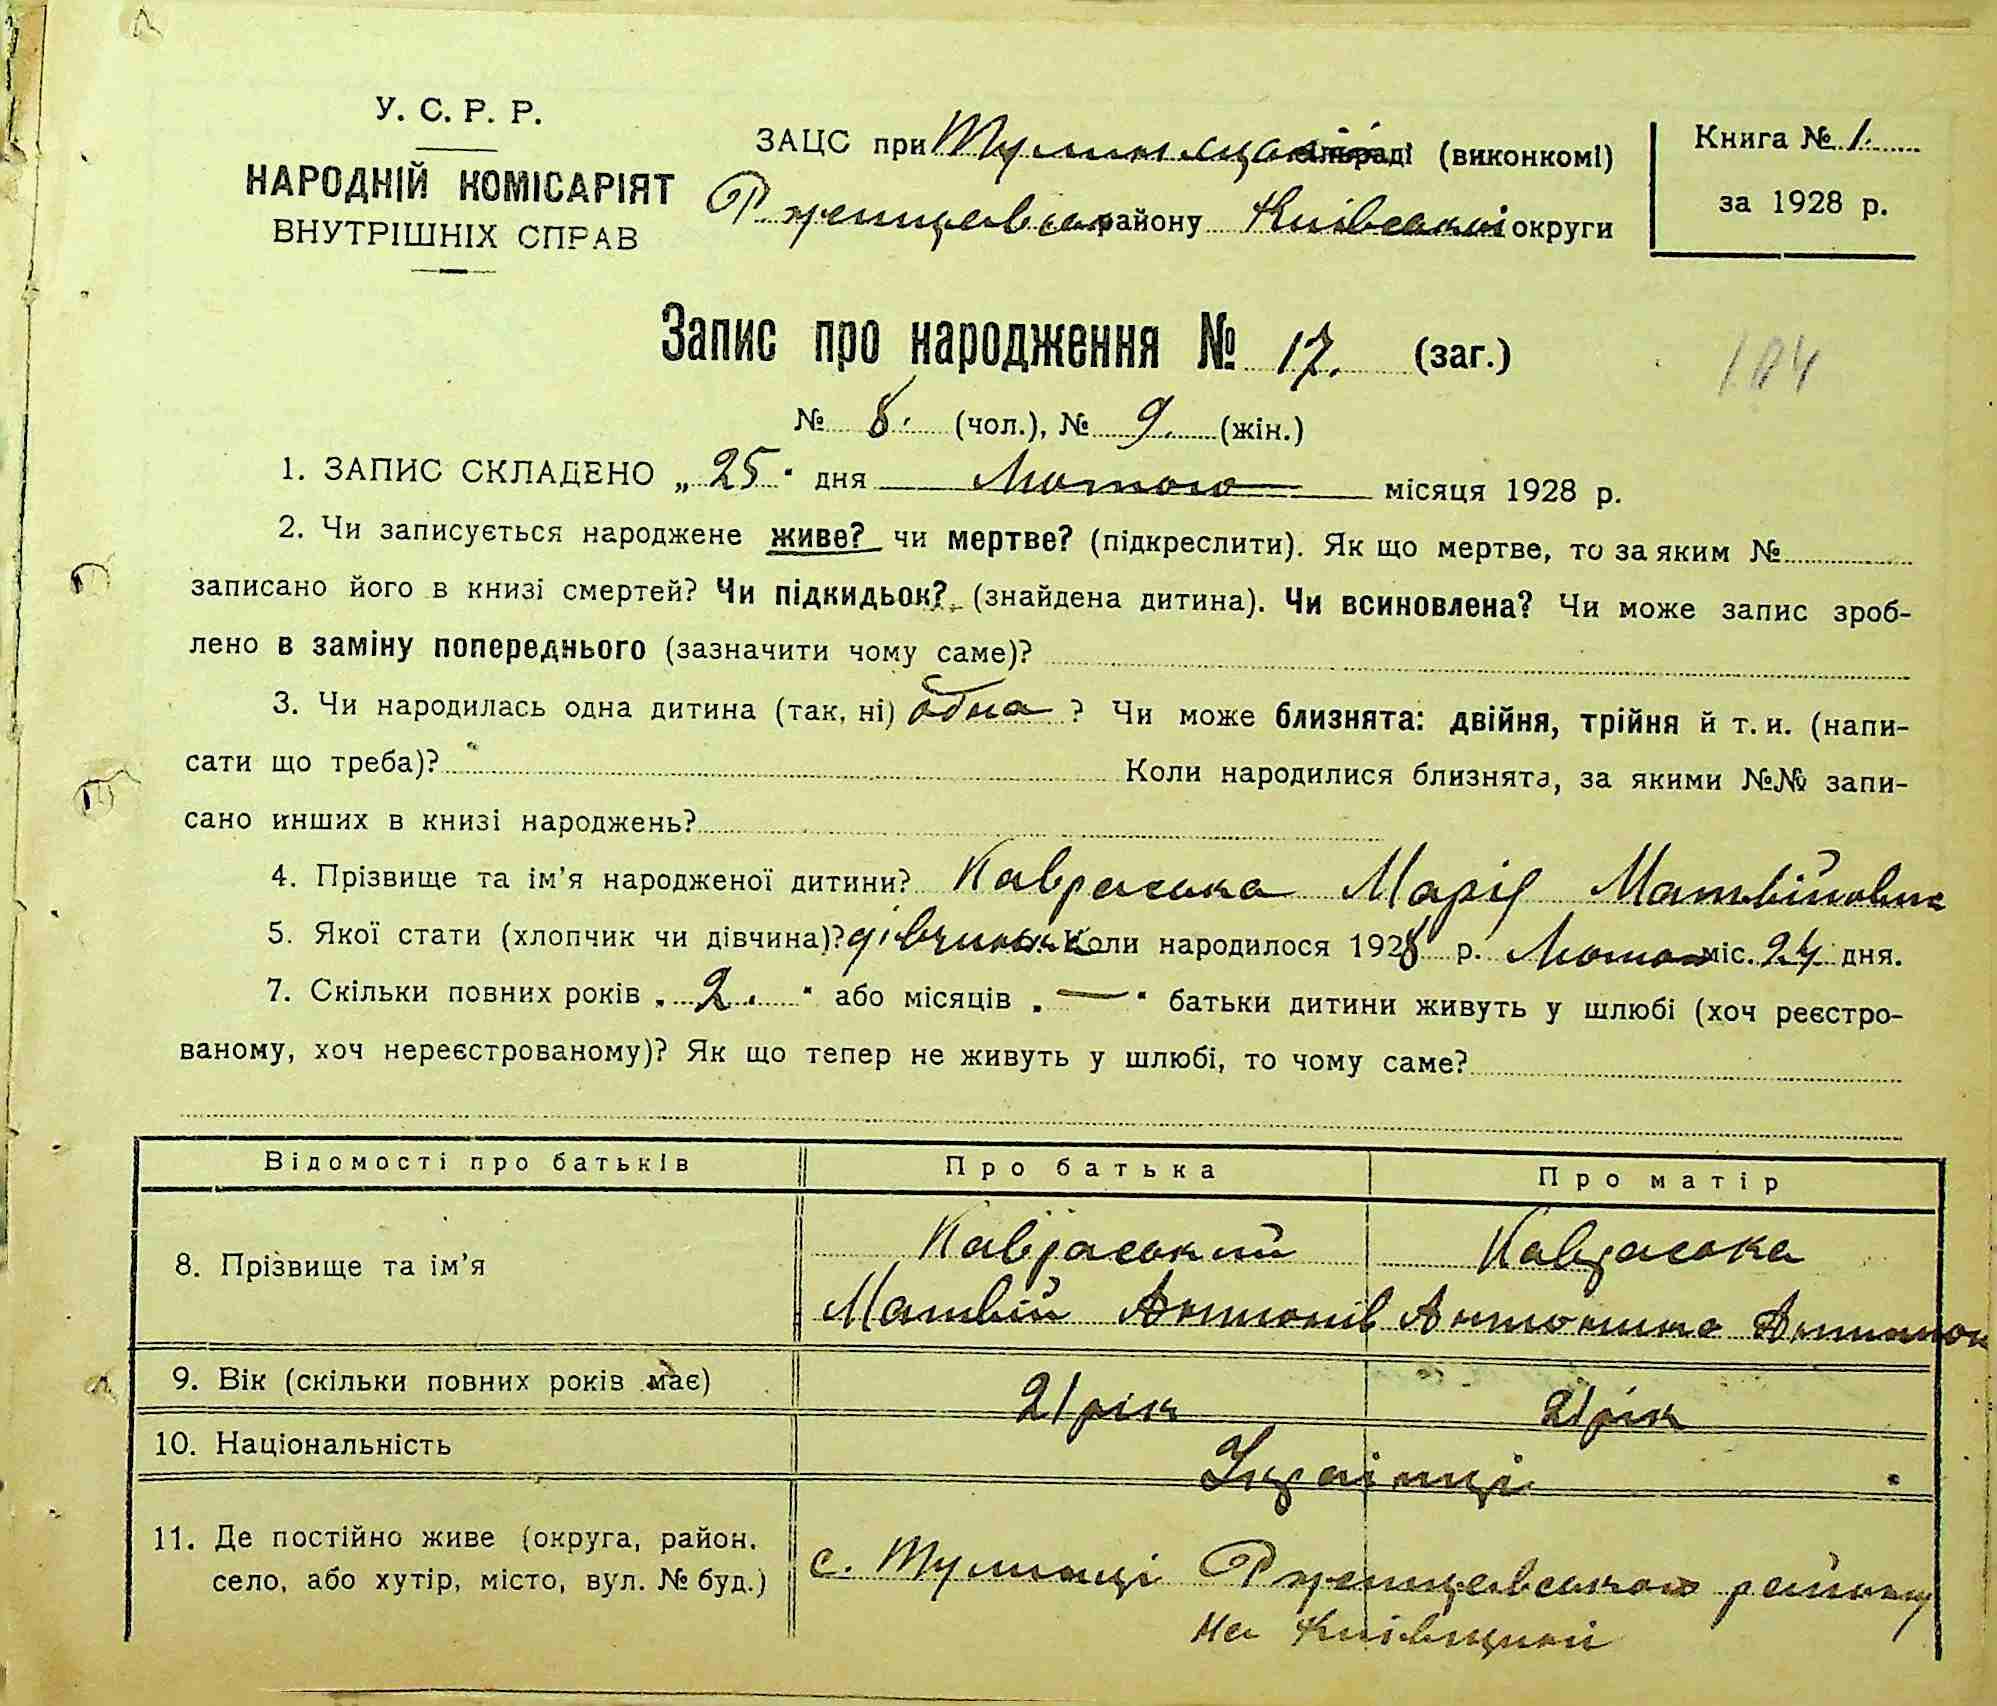 У. С. Р. Р.
НАРОДНІЙ КОМІСАРІЯТ
ВНУТРІШНІХ СПРАВ
ЗАЦС при Тулинській сільраді (виконкомі)
Ржищевськ району Київської округи
Книга № 1.
за 1928 р.
Запис про народження № 17. (заг.)
184
№ 8. (чол.), № 9. (жін.)
1. ЗАПИС СКЛАДЕНО „25" дня Лютого місяця 1928 р.
2. Чи записується народжене живе? чи мертве? (підкреслити). Як що мертве, то за яким №
записано його в книзі смертей? Чи підкидьок? (знайдена дитина). Чи всиновлена? Чи може запис зроб-
лено в заміну попереднього (зазначити чому саме)?
3. Чи народилась одна дитина (так, ні) одна ? Чи може близнята: двійня, трійня й т. и. (напи-
сати що треба)? Коли народилися близнята, за якими №№ запи-
сано инших в книзі народжень?
4. Прізвище та ім'я народженої дитини? Кавраська Марія Матвійовна
5. Якої стати (хлопчик чи дівчина)? дівчинка Коли народилося 1928 р. Лютого міс. 24 дня.
7. Скільки повних років „2." або місяців „—" батьки дитини живуть у шлюбі (хоч реєстро-
ваному, хоч нереєстрованому)? Як що тепер не живуть у шлюбі, то чому саме?
Відомості про батьків Про батька Про матір
8. Прізвище та ім'я Кавраський Кавраська
Матвій Антонів Антонина Антонов
9. Вік (скільки повних років має) 21 рік 21 рік
10. Національність Українці
11. Де постійно живе (округа, район, село, або хутір, місто, вул. № буд.) с. Тулинці Ржищевського району
на Київщині